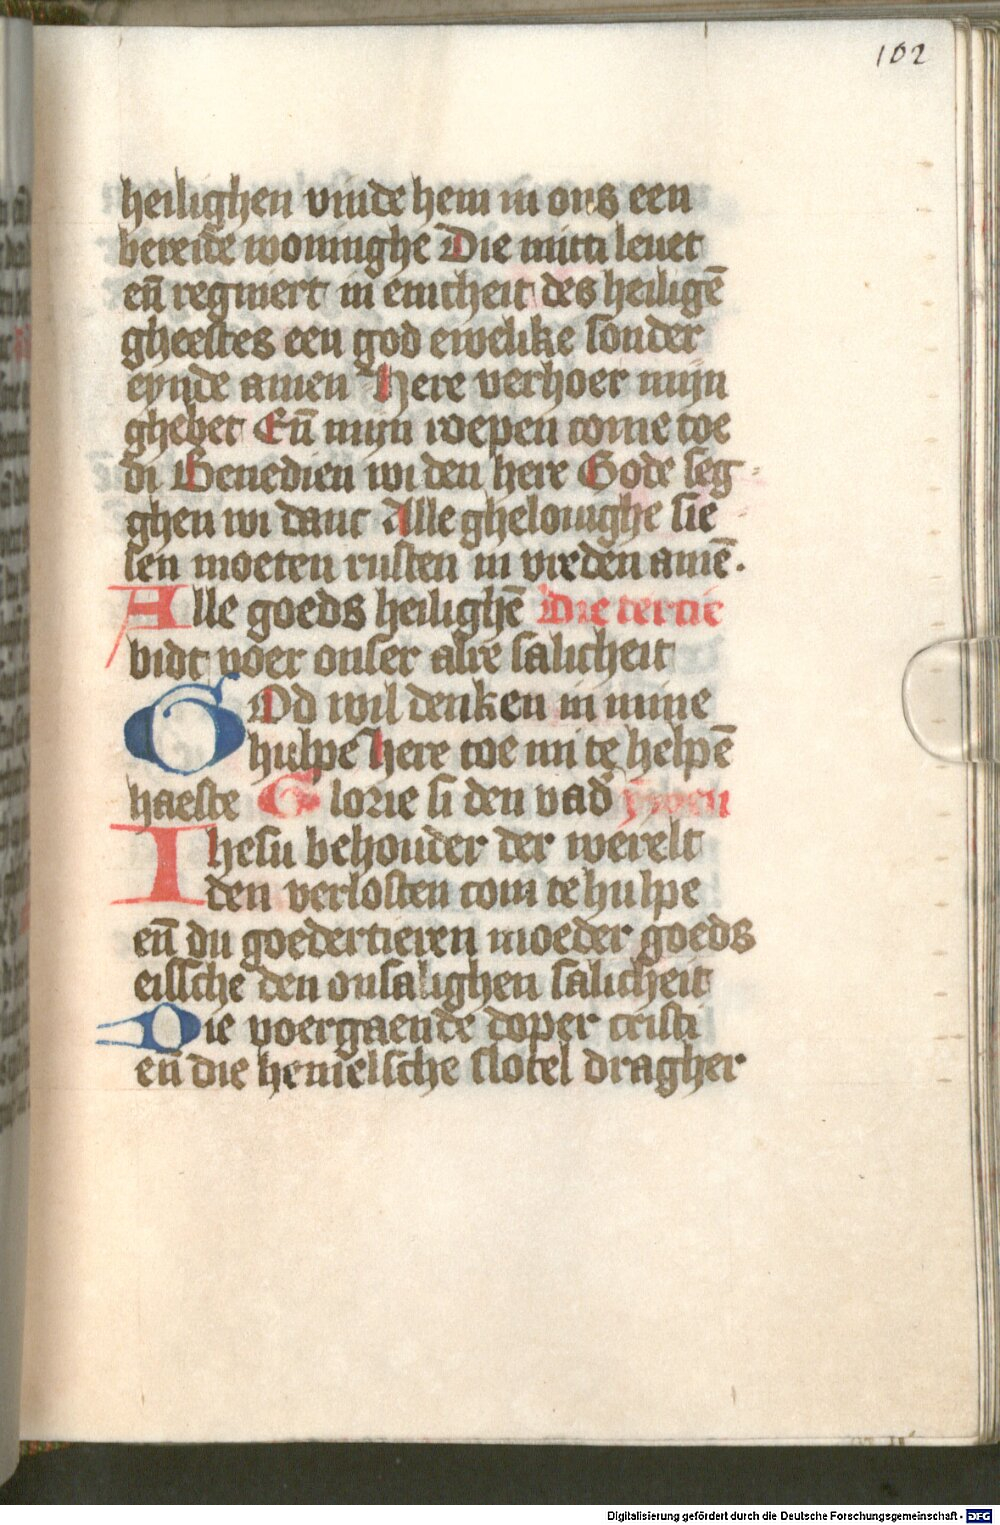 102
heilighen vinde hem in ons een
bereide woninghe Die mitti leuet
eñ regniert in enicheit des heiligē
gheestes een god ewelike sonder
eynde amen Here verhoer mijn
ghebet Eñ mijn roepen come toe
di Benedien wi den here Gode seg-
ghen wi danc Alle ghelouighe sie
len moeten rusten in vreden amē.
Alle goeds heilighē Die tercie
bidt voer onser alre salicheit
GOd wil denken in mine
hulpe Here toe mi te helpē
haeste Glorie si den vad
Ihesu behouder der werelt
den verlosten com te hulpe
eñ du goedertieren moeder goeds
eissche den onsalighen salicheit
Die voergaende doper cristi
eñ die hemelsche slotel dragher
Digitalisierung gefördert durch die Deutsche Forschungsgemeinschaft - DFG